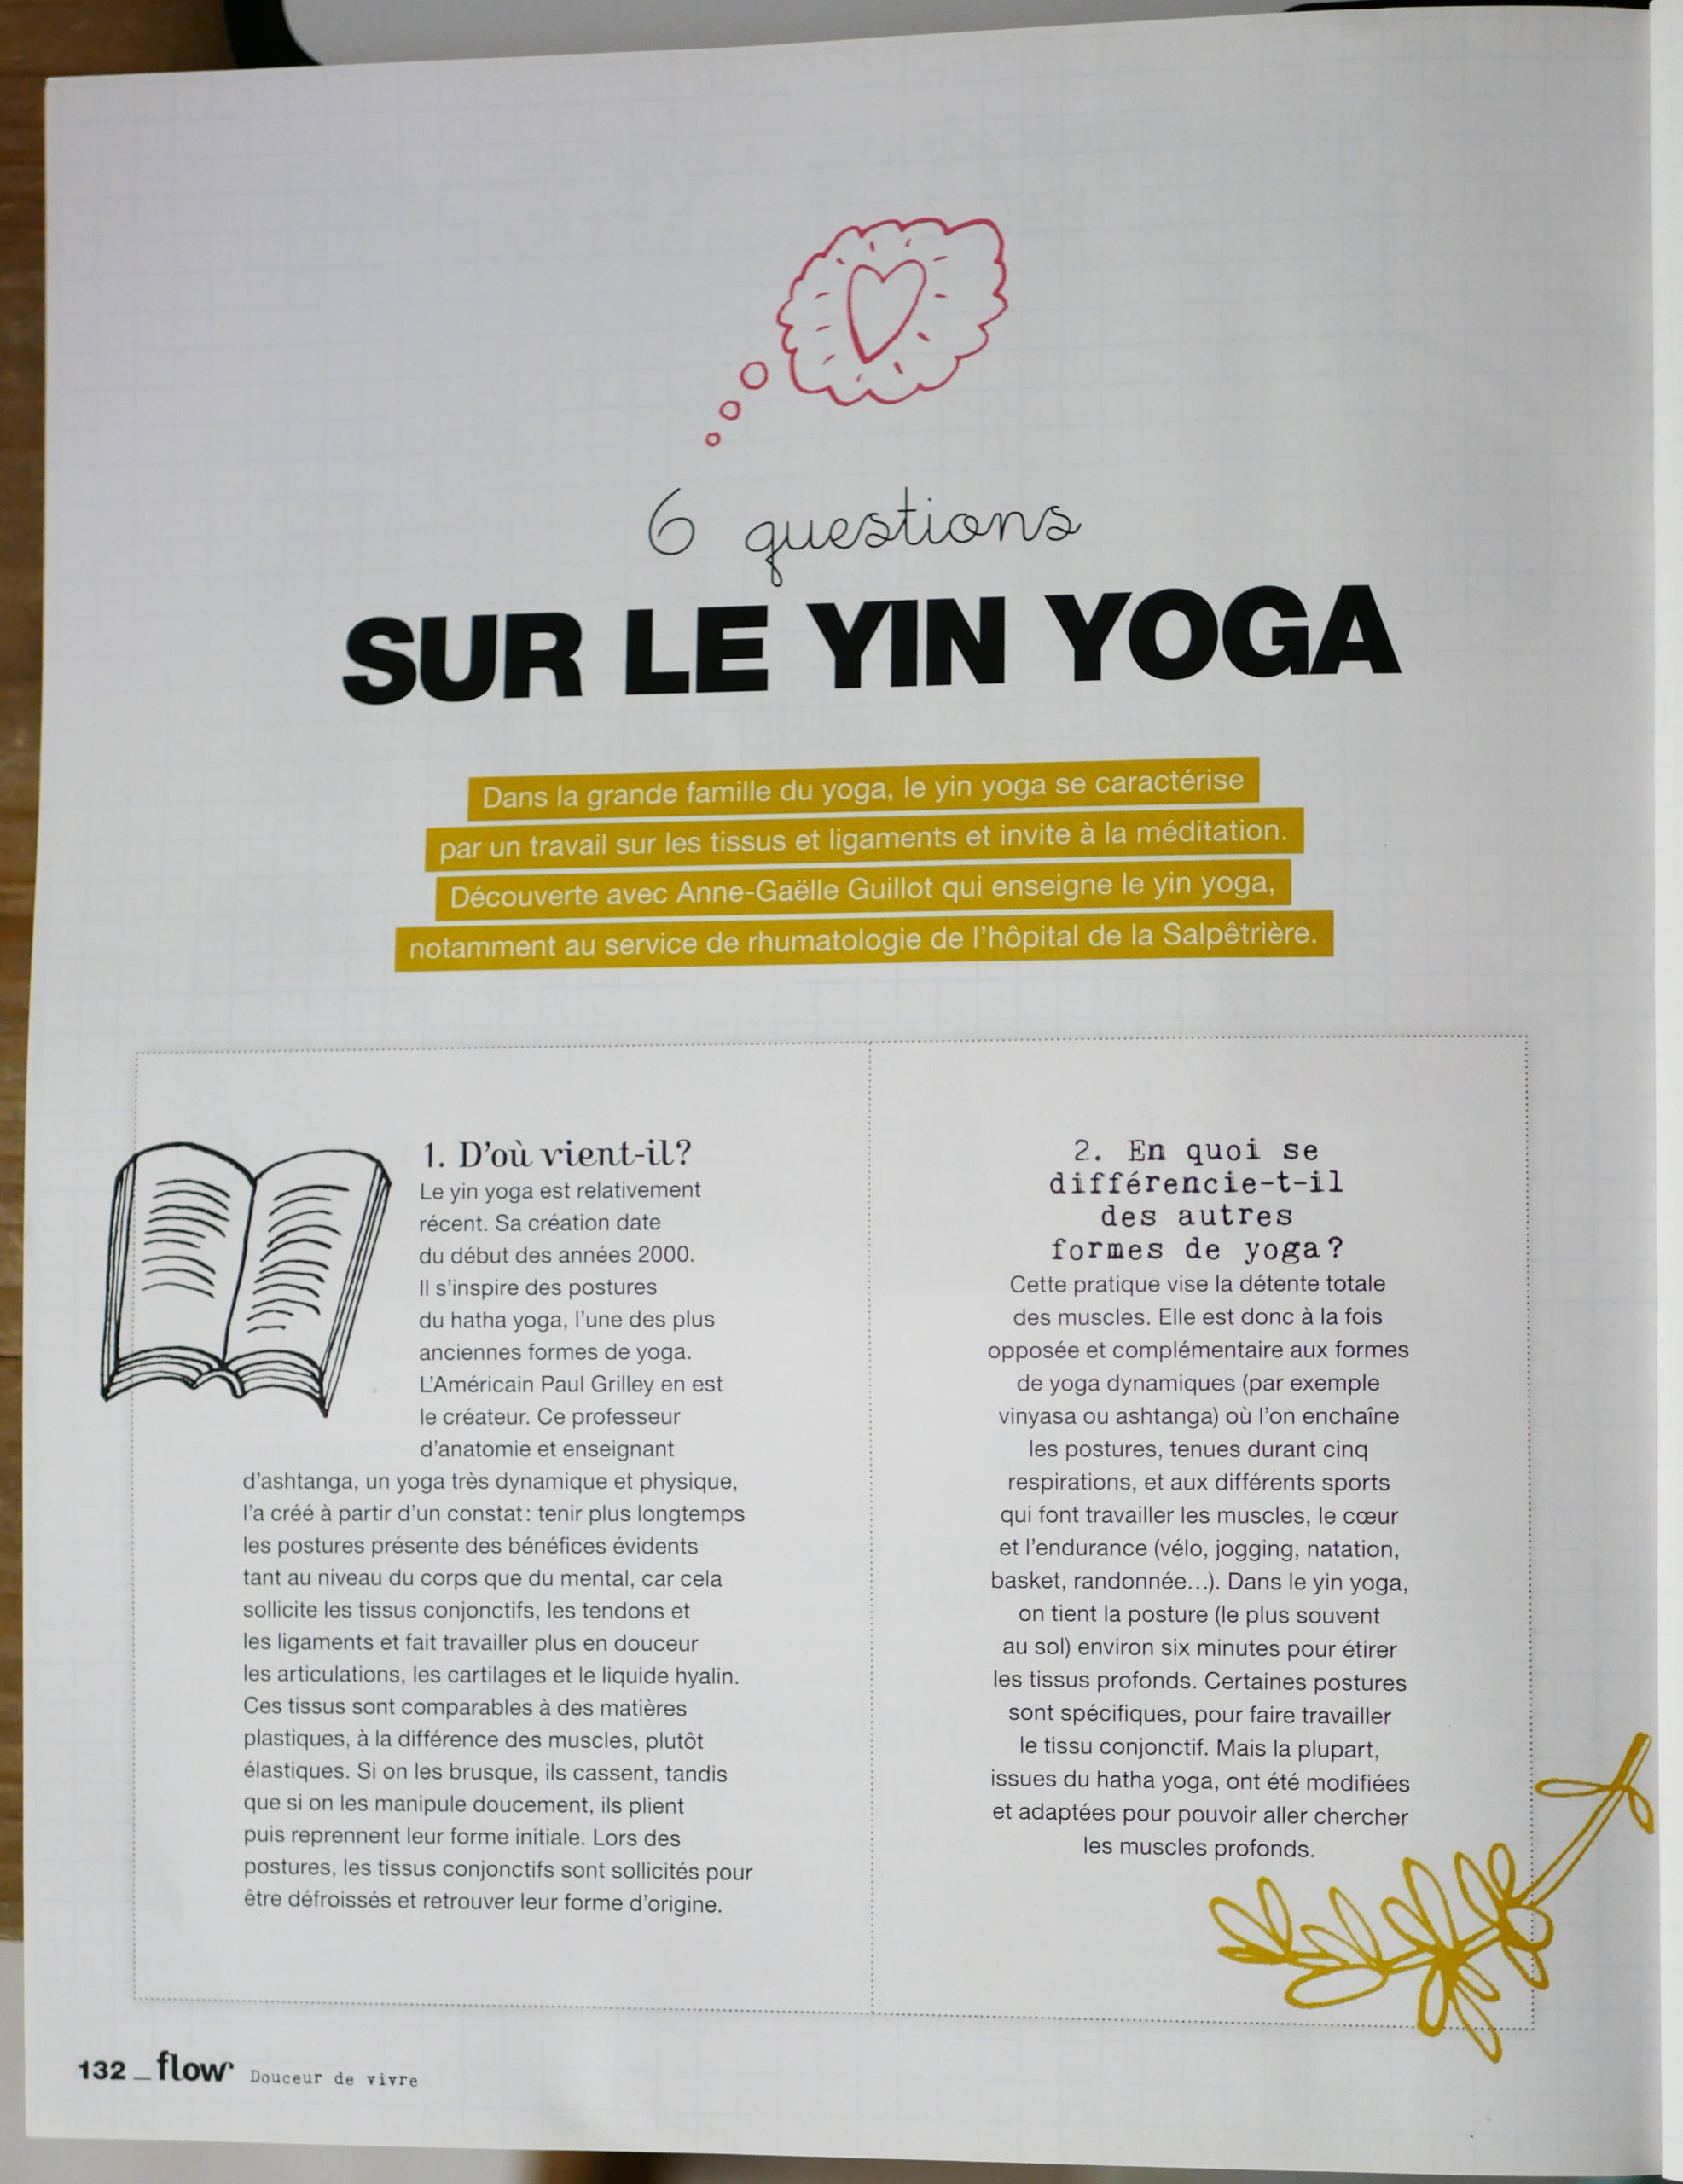 6 questions
SUR LE YIN YOGA
Dans la grande famille du yoga, le yin yoga se caractérise
par un travail sur les tissus et ligaments et invite à la méditation.
Découverte avec Anne-Gaëlle Guillot qui enseigne le yin yoga,
notamment au service de rhumatologie de l'hôpital de la Salpêtrière.
1. D'où vient-il?
Le yin yoga est relativement
récent. Sa création date
du début des années 2000.
Il s'inspire des postures
du hatha yoga, l'une des plus
anciennes formes de yoga.
L'Américain Paul Grilley en est
le créateur. Ce professeur
d'anatomie et enseignant
d'ashtanga, un yoga très dynamique et physique,
l'a créé à partir d'un constat: tenir plus longtemps
les postures présente des bénéfices évidents
tant au niveau du corps que du mental, car cela
sollicite les tissus conjonctifs, les tendons et
les ligaments et fait travailler plus en douceur
les articulations, les cartilages et le liquide hyalin.
Ces tissus sont comparables à des matières
plastiques, à la différence des muscles, plutôt
élastiques. Si on les brusque, ils cassent, tandis
que si on les manipule doucement, ils plient
puis reprennent leur forme initiale. Lors des
postures, les tissus conjonctifs sont sollicités pour
être défroissés et retrouver leur forme d'origine.
2. En quoi se
différencie-t-il
des autres
formes de yoga?
Cette pratique vise la détente totale
des muscles. Elle est donc à la fois
opposée et complémentaire aux formes
de yoga dynamiques (par exemple
vinyasa ou ashtanga) où l'on enchaîne
les postures, tenues durant cinq
respirations, et aux différents sports
qui font travailler les muscles, le cœur
et l'endurance (vélo, jogging, natation,
basket, randonnée...). Dans le yin yoga,
on tient la posture (le plus souvent
au sol) environ six minutes pour étirer
les tissus profonds. Certaines postures
sont spécifiques, pour faire travailler
le tissu conjonctif. Mais la plupart,
issues du hatha yoga, ont été modifiées
et adaptées pour pouvoir aller chercher
les muscles profonds.
132_flow Douceur de vivre